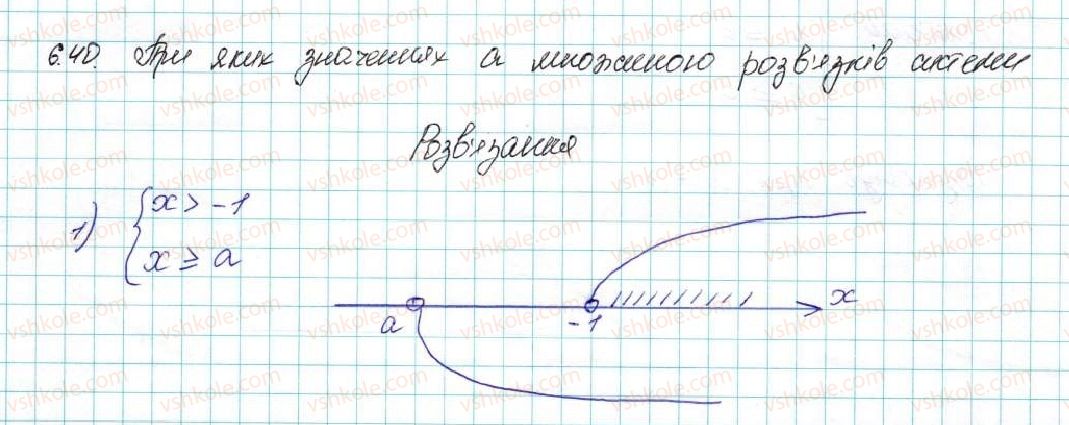 6.40. При яких значеннях a множиною розв'язків системи
Розв'язання
1) { x > -1
x ≥ a
a -1 x